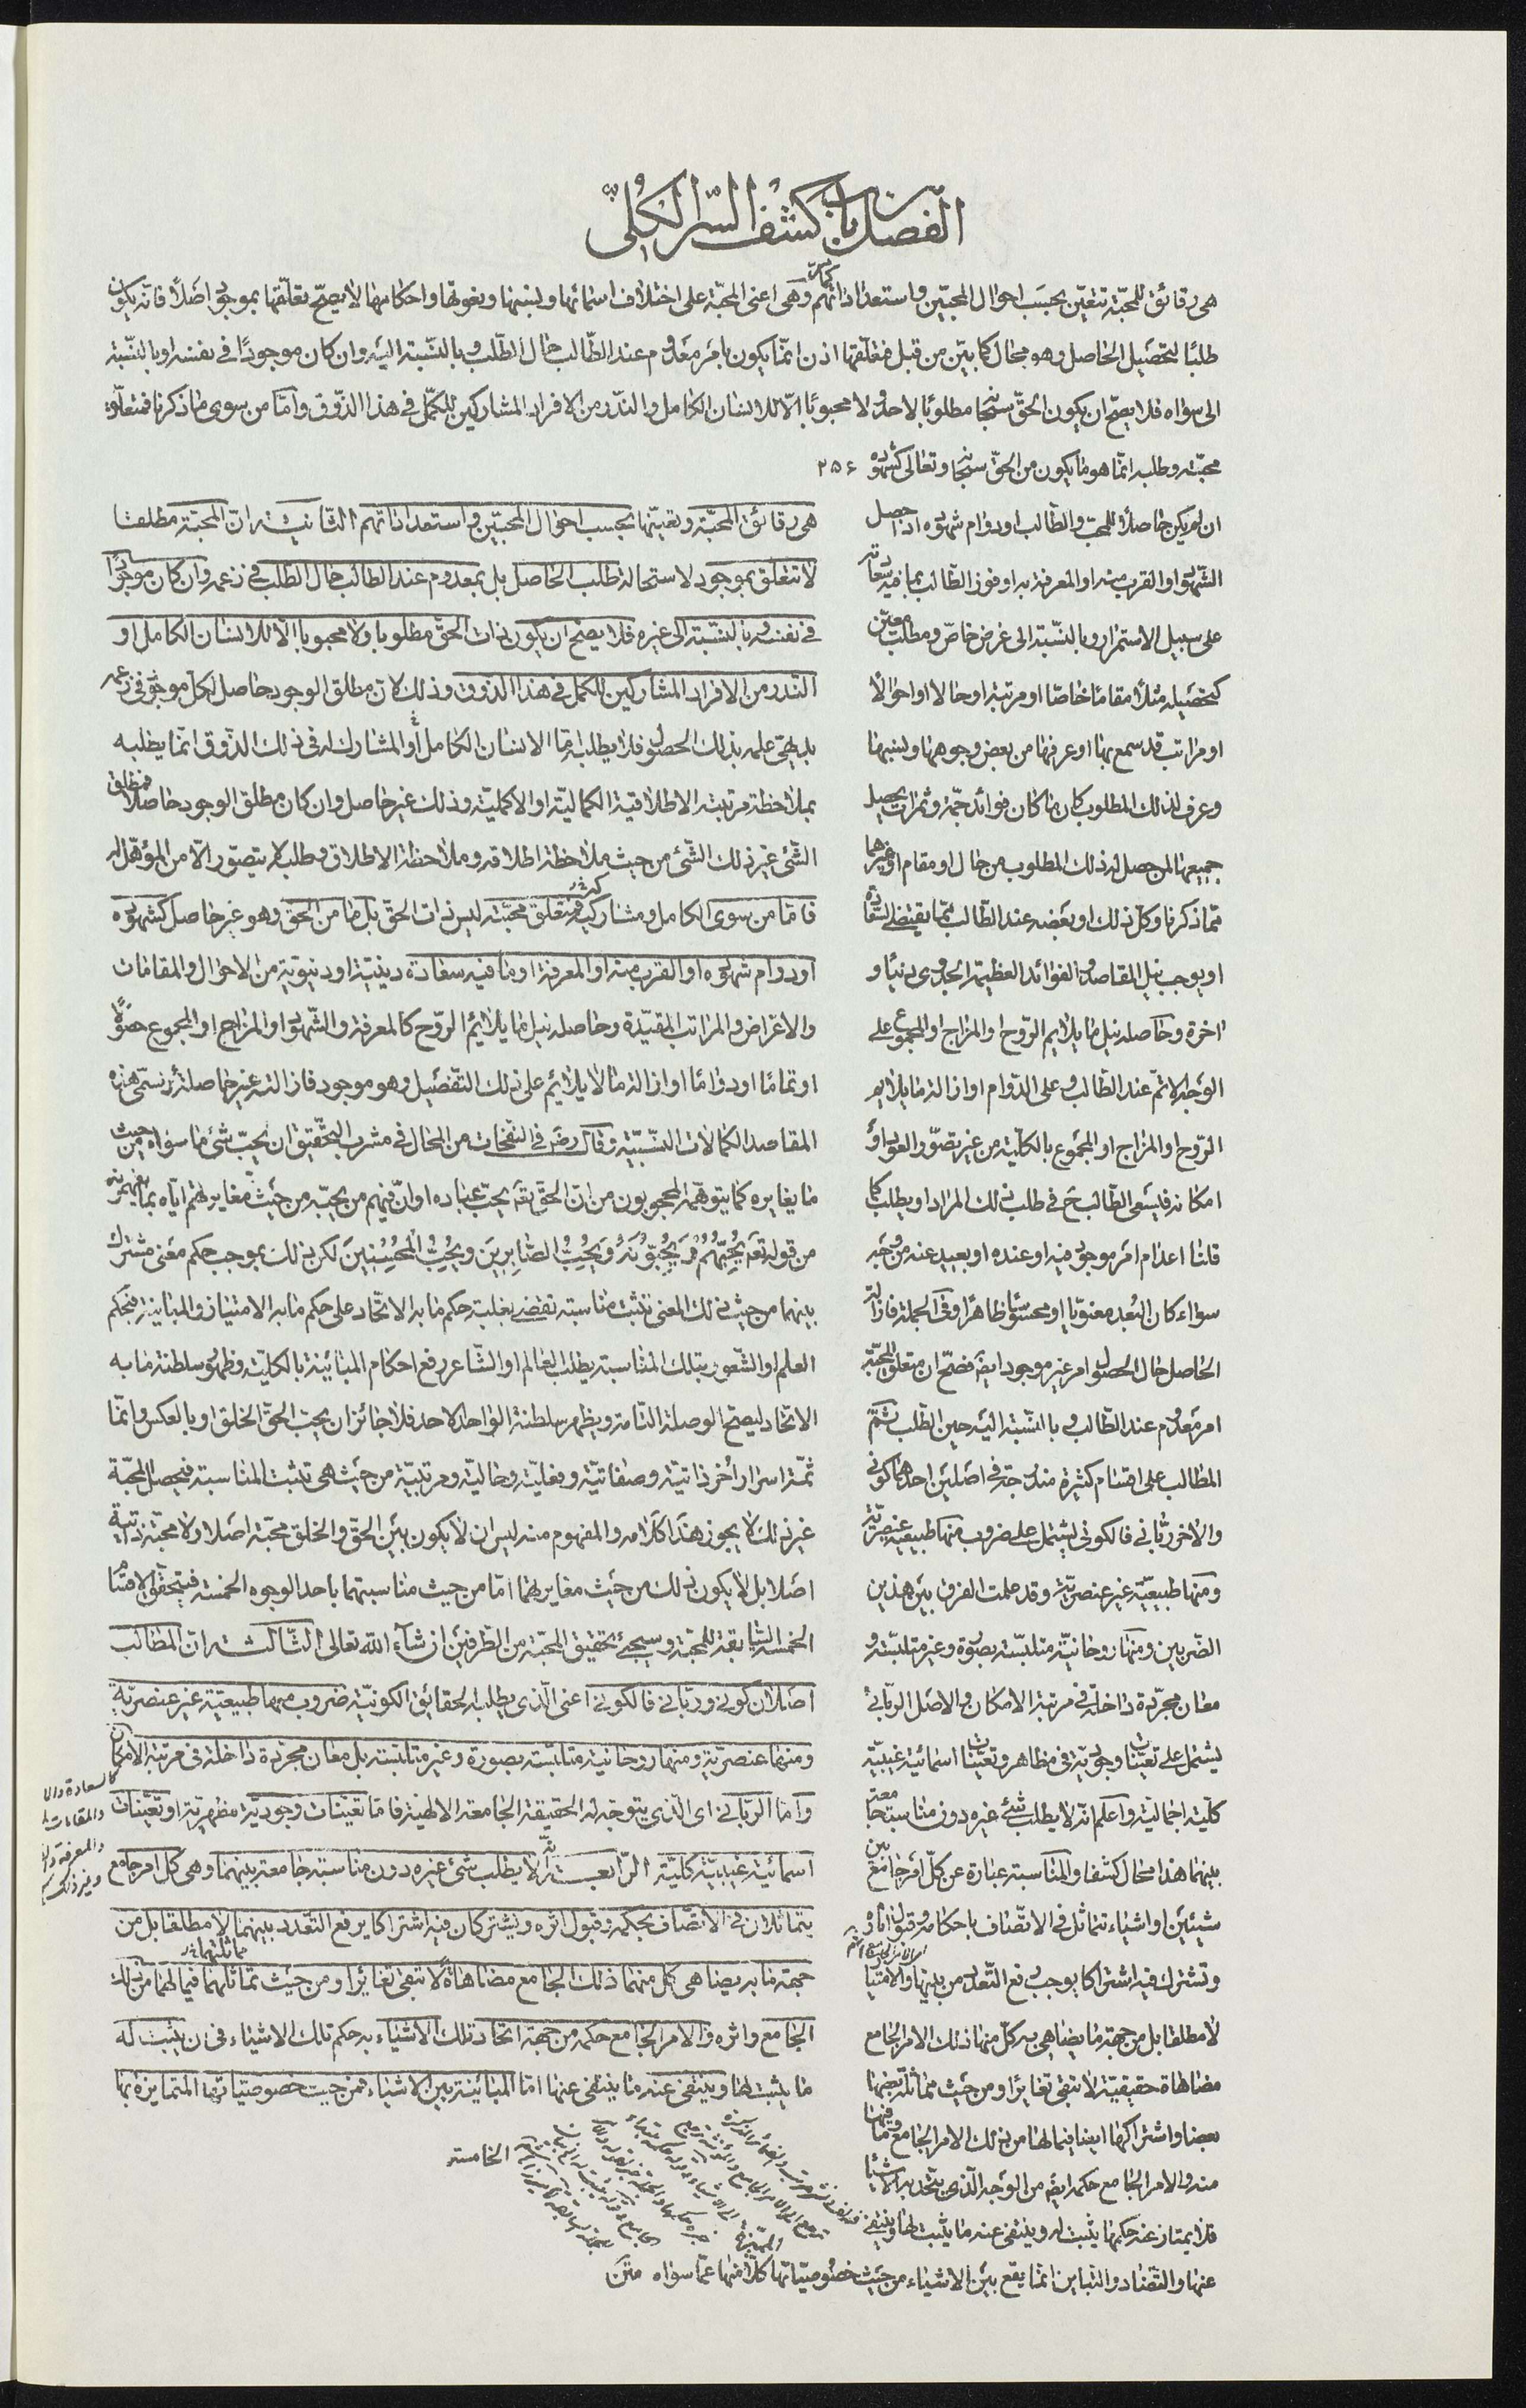 الفصل باب كشف السر الكلي
هى رقائق للمحبّة تتعيّن بحسب احوال المحبّين واستعداداتهم وهى اعنى المحبّة على اختلاف اسمائها ونسبها ونعوتها واحكامها لا يصحّ تعلّقها بموجود اصلًا فانه يكون
طلبًا لتحصيل الحاصل وهو محال كما بيّن من قبل فتعلّقها اذن انّما يكون بامر معدوم عند الطّالب حال الطّلب وبالنّسبة اليه وان كان موجودًا فى نفسه او بالنّسبة
الى سواه فلا يصحّ ان يكون الحقّ سبحانه مطلوبًا لاحد ولا محبوبًا الّا للانسان الكامل والنّدّر من الافراد المشاركين للكمّل فى هذا الذّوق وامّا من سوى ما ذكرنا فمتعلّق
محبّته وطلبه انّما هو ما يكون من الحقّ سبحانه وتعالى كشهوده ٢٥۶
ان لم يكن حاصلًا للمحبّ والطّالب او دوام شهوده اذا حصل
الشّهود او القرب منه او المعرفة به او فوز الطّالب بما فيه سعادته
على سبيل الاستمرار وبالنّسبة الى غرض خاصّ ومطلب معيّن
كتحصيله مثلًا مقامًا خاصًا او مرتبة او حالا او احوالًا
او مراتب قد سمع بها او عرفها من بعض وجوهها ونسبها
وعرف لذلك المطلوب كان ما كان فوائد جمّة وثمرات يحصل
جميعها لمن حصل له ذلك المطلوب من حال او مقام او غيرهما
ممّا ذكرنا وكلّ ذلك او بعضه عند الطّالب ممّا يقتضى السّعادة
او يوجب نيل المقاصد والفوائد العظيمة الجدوى دنيا و
اخرة وحاصله نيل ما يلايم الرّوح او المزاج او المجموع على
الوجه الاتمّ عند الطّالب وعلى الدّوام او ازالة ما يلايم
الرّوح او المزاج او المجموع بالكلّية من غير تصوّر العود او
امكانه فيسعى الطّالب ح فى طلب ذلك المراد او يطلب كما
قلنا اعدام امر موجود فيه او عنده او بعيد عنه من وجه
سواء كان البُعد معنويّا او محسوسا ظاهرًا وفى الجملة فازالة
الحاصل حال الحصول امر غير موجود ايضًا فصحّ ان متعلّق المحبّة
امر معدوم عند الطّالب وبالنّسبة اليه حين الطّلب ثمّ
المطالب على اقسام كثيرة مندرجة فى اصلين احدهما كونى
والاخر ربّانى فالكونى يشتمل على ضروب منها طبيعية عنصريّة
ومنها طبيعيّة غير عنصريّة وقد علمت الفرق بين هذين
الضّربين ومنها روحانيّة متلبّسة بصورة وغير متلبّسة و
معان مجرّدة داخلة فى مرتبة الامكان والاصل الربّانى
يشتمل على تعيّنات وجوديّة فى مظاهر وتعيّنات اسمائية غيبيّة
كلّية اجمالية واعلم انّه لا يطلب شئ غيره دون مناسبة جامعة
بينهما هذا محال كشفا والمناسبة عبارة عن كلّ امر جامع بين
شيئين او اشياء تتماثل فى الاتّصاف باحكامه وقبول اثاره و
وتشترك فيه اشتراكا يوجب رفع التّعدد من بينها والامتياز
لا مطلقا بل من جهة ما يضاهى به كلّ منها ذلك الامر الجامع
مضاهاة حقيقيّة لا تبقى تغايرًا ومن حيث مماثلة بعضها
بعضا واشتراكها ايضا فيما لها من ذلك الامر الجامع وما فيها
منه والامر الجامع حكمه ايضًا من الوجه الّذى يتّحد به الاشياء
فلا يمتاز عنه حكمها يثبت له وينتفى عنه ما يثبت لها وينتفى
عنها والتّضاد والتّباين انّما يقع بين الاشياء من حيث خصوصيّاتها المميّزة كلّا منها عمّا سواه متن
هى رقائق المحبّة وتعيّنها بحسب احوال المحبّين واستعداداتهم الثّانيّة انّ المحبّة مطلقا
لا تتعلّق بموجود لاستحالة طلب الحاصل بل بمعدوم عند الطالب حال الطلب فى زعمه وان كان موجودًا
فى نفسه وبالنّسبة الى غيره فلا يصح ان يكون ذات الحقّ مطلوبا ولا محبوبا الّا للانسان الكامل او
النّدر من الافراد المشاركين للكمل فى هذا الذّوق وذلك لانّ مطلق الوجود حاصل لكل موجود فى زعمه
بل بديهىّ علمه بذلك الحصول فلا يطلبه امّا الانسان الكامل أو المشارك له فى ذلك الذّوق انّما يطلبه
بملاحظة مرتبته الاطلاقية الكماليّة او الاكمليّة وذلك غير حاصل وان كان مطلق الوجود حاصلًا فمطلق
الشّئ غير ذلك الشّئ من حيث ملاحظة اطلاقه وملاحظة الاطلاق وطلبه لا يتصوّر الّا من المؤهّل له
فامّا من سوى الكامل ومشاركيه فمتعلق محبّته ليس ذات الحقّ بل ما من الحقّ وهو غير حاصل كشهوده
او دوام شهوده او القرب منه او المعرفة او ما فيه سعادة دينيّة او دنيويّة من الاحوال والمقامات
والاغراض والمراتب المقيّدة وحاصله نيل ما يلائم الرّوح كالمعرفة والشّهود او المزاج او المجموع حصولًا
او تمامًا او دوامًا او ازالة ما لا يلائم على ذلك التّفصيل وهو موجود فازالته غير حاصلة وتسمّى هذه
المقاصد الكمالات النّسبيّة وقال رضى فى النّفحات من المحال فى مشرب التّحقيق ان يحبّ شئ ما سواه من حيث
ما يغايره كما يتوهّمه المحجوبون من انّ الحقّ تعه يحبّ عباده او انّ فيهم من يحبّه من حيث مغايرتهم ايّاه بما يفهمونه
من قوله تعه يُحِبُّهُمْ وَيُحِبُّونَهُ وَيُحِبُّ الصَّابِرِينَ ويُحِبُّ الْمُحْسِنِينَ لكن ذلك بموجب حكم معنى مشترك
بينهما من حيث ذلك المعنى تثبت مناسبة تقتضى بغلبة حكم ما به الاتّحاد على حكم ما به الامتياز والمباينة فبحكم
العلم او الشّعور بتلك المناسبة يطلب العالم او الشّاعر رفع احكام المباينة بالكليّة وظهور سلطنة ما به
الاتحاد ليصحّ الوصلة التّامة ويظهر سلطنة الواحد الاحد فلا جائز ان يحبّ الحقّ الخلق او بالعكس وانّما
ثمّة اسرار أُخر ذاتيّة وصفاتيّة وفعليّة وحاليّة ومرتبيّة من حيث هى تثبت المناسبة فيحصل المحبّة
غير ذلك لا يجوز هذا كلامه والمفهوم منه ليس ان لا يكون بين الحقّ والخلق محبّة اصلا ولا محبّة ذاتية
اصلا بل لا يكون ذلك من حيث مغايرتهما امّا من حيث مناسبتهما باحد الوجوه الخمسة فيتحقّق الاقسام
الخمسة السّابقة للمحبّة وسيجئ تحقيق المحبّة من الطّرفين ان شآء الله تعالى الثّالثة انّ المطالب
اصلان كونى وربّانى فالكونى اعنى الّذى يطلبه الحقائق الكونيّة ضروب منها طبيعيّة غير عنصريّة
ومنها عنصريّة ومنها روحانيّة متلبّسة بصورة وغير متلبّسة بل معان مجرّدة داخلة فى مرتبة الامكان
وامّا الربّانى اى الّذى يتوجّه له الحقيقة الجامعة الالهيّة فامّا تعيّنات وجوديّة مظهريّة او تعيّنات
اسمائيّة غيبيّة كليّة الرّابعة انّه لا يطلب شئ غيره دون مناسبة جامعة بينهما وهى كل امر جامع
يتماثلان فى الاتّصاف بحكمه وقبول اثره ويشتركان فيه اشتراكا يرفع التّعدد بينهما لا مطلقا بل من
جهة ما به يضاهى كل منهما ذلك الجامع مضاهاة لا تبقى تغايرًا ومن حيث تماثلهما فيما لهما من ذلك
الجامع واثره والامر الجامع حكمه من جهة اتحاد تلك الاشياء به حكم تلك الاشياء فى ان يثبت له
ما يثبت لها وينتفى عنه ما ينتفى عنها امّا المباينة بين الاشياء فمن حيث خصوصيّاتها المتمايزة بها
الخامسة